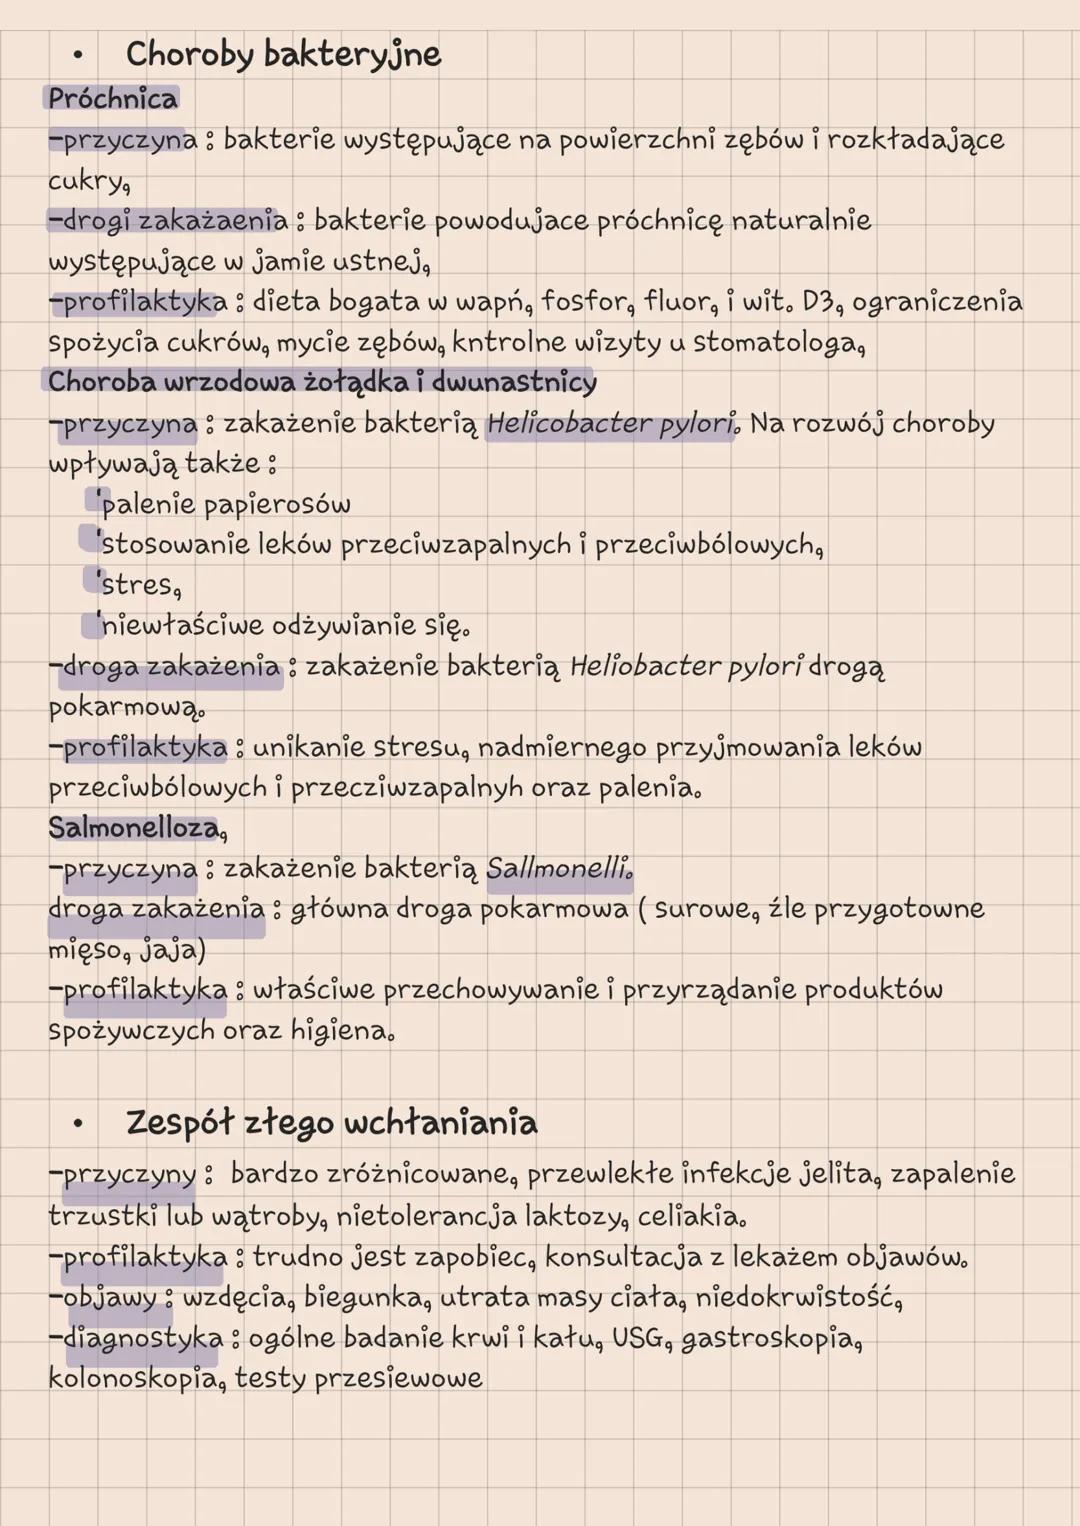 • Choroby bakteryjne
Próchnica
-przyczyna : bakterie występujące na powierzchni zębów i rozkładające
cukry,
-drogi zakażaenia : bakterie powodujace próchnicę naturalnie
występujące w jamie ustnej,
-profilaktyka : dieta bogata w wapń, fosfor, fluor, i wit. D3, ograniczenia
spożycia cukrów, mycie zębów, kntrolne wizyty u stomatologa,
Choroba wrzodowa żołądka i dwunastnicy
-przyczyna : zakażenie bakterią Helicobacter pylori. Na rozwój choroby
wpływają także :
'palenie papierosów
'stosowanie leków przeciwzapalnych i przeciwbólowych,
'stres,
'niewłaściwe odżywianie się.
-droga zakażenia : zakażenie bakterią Heliobacter pylori drogą
pokarmową.
-profilaktyka : unikanie stresu, nadmiernego przyjmowania leków
przeciwbólowych i przecziwzapalnyh oraz palenia.
Salmonelloza,
-przyczyna : zakażenie bakterią Sallmonelli.
droga zakażenia : główna droga pokarmowa ( surowe, źle przygotowne
mięso, jaja)
-profilaktyka : właściwe przechowywanie i przyrządanie produktów
spożywczych oraz higiena.
• Zespół złego wchłaniania
-przyczyny : bardzo zróżnicowane, przewlekłe infekcje jelita, zapalenie
trzustki lub wątroby, nietolerancja laktozy, celiakia.
-profilaktyka : trudno jest zapobiec, konsultacja z lekażem objawów.
-objawy : wzdęcia, biegunka, utrata masy ciała, niedokrwistość,
-diagnostyka : ogólne badanie krwi i kału, USG, gastroskopia,
kolonoskopia, testy przesiewowe